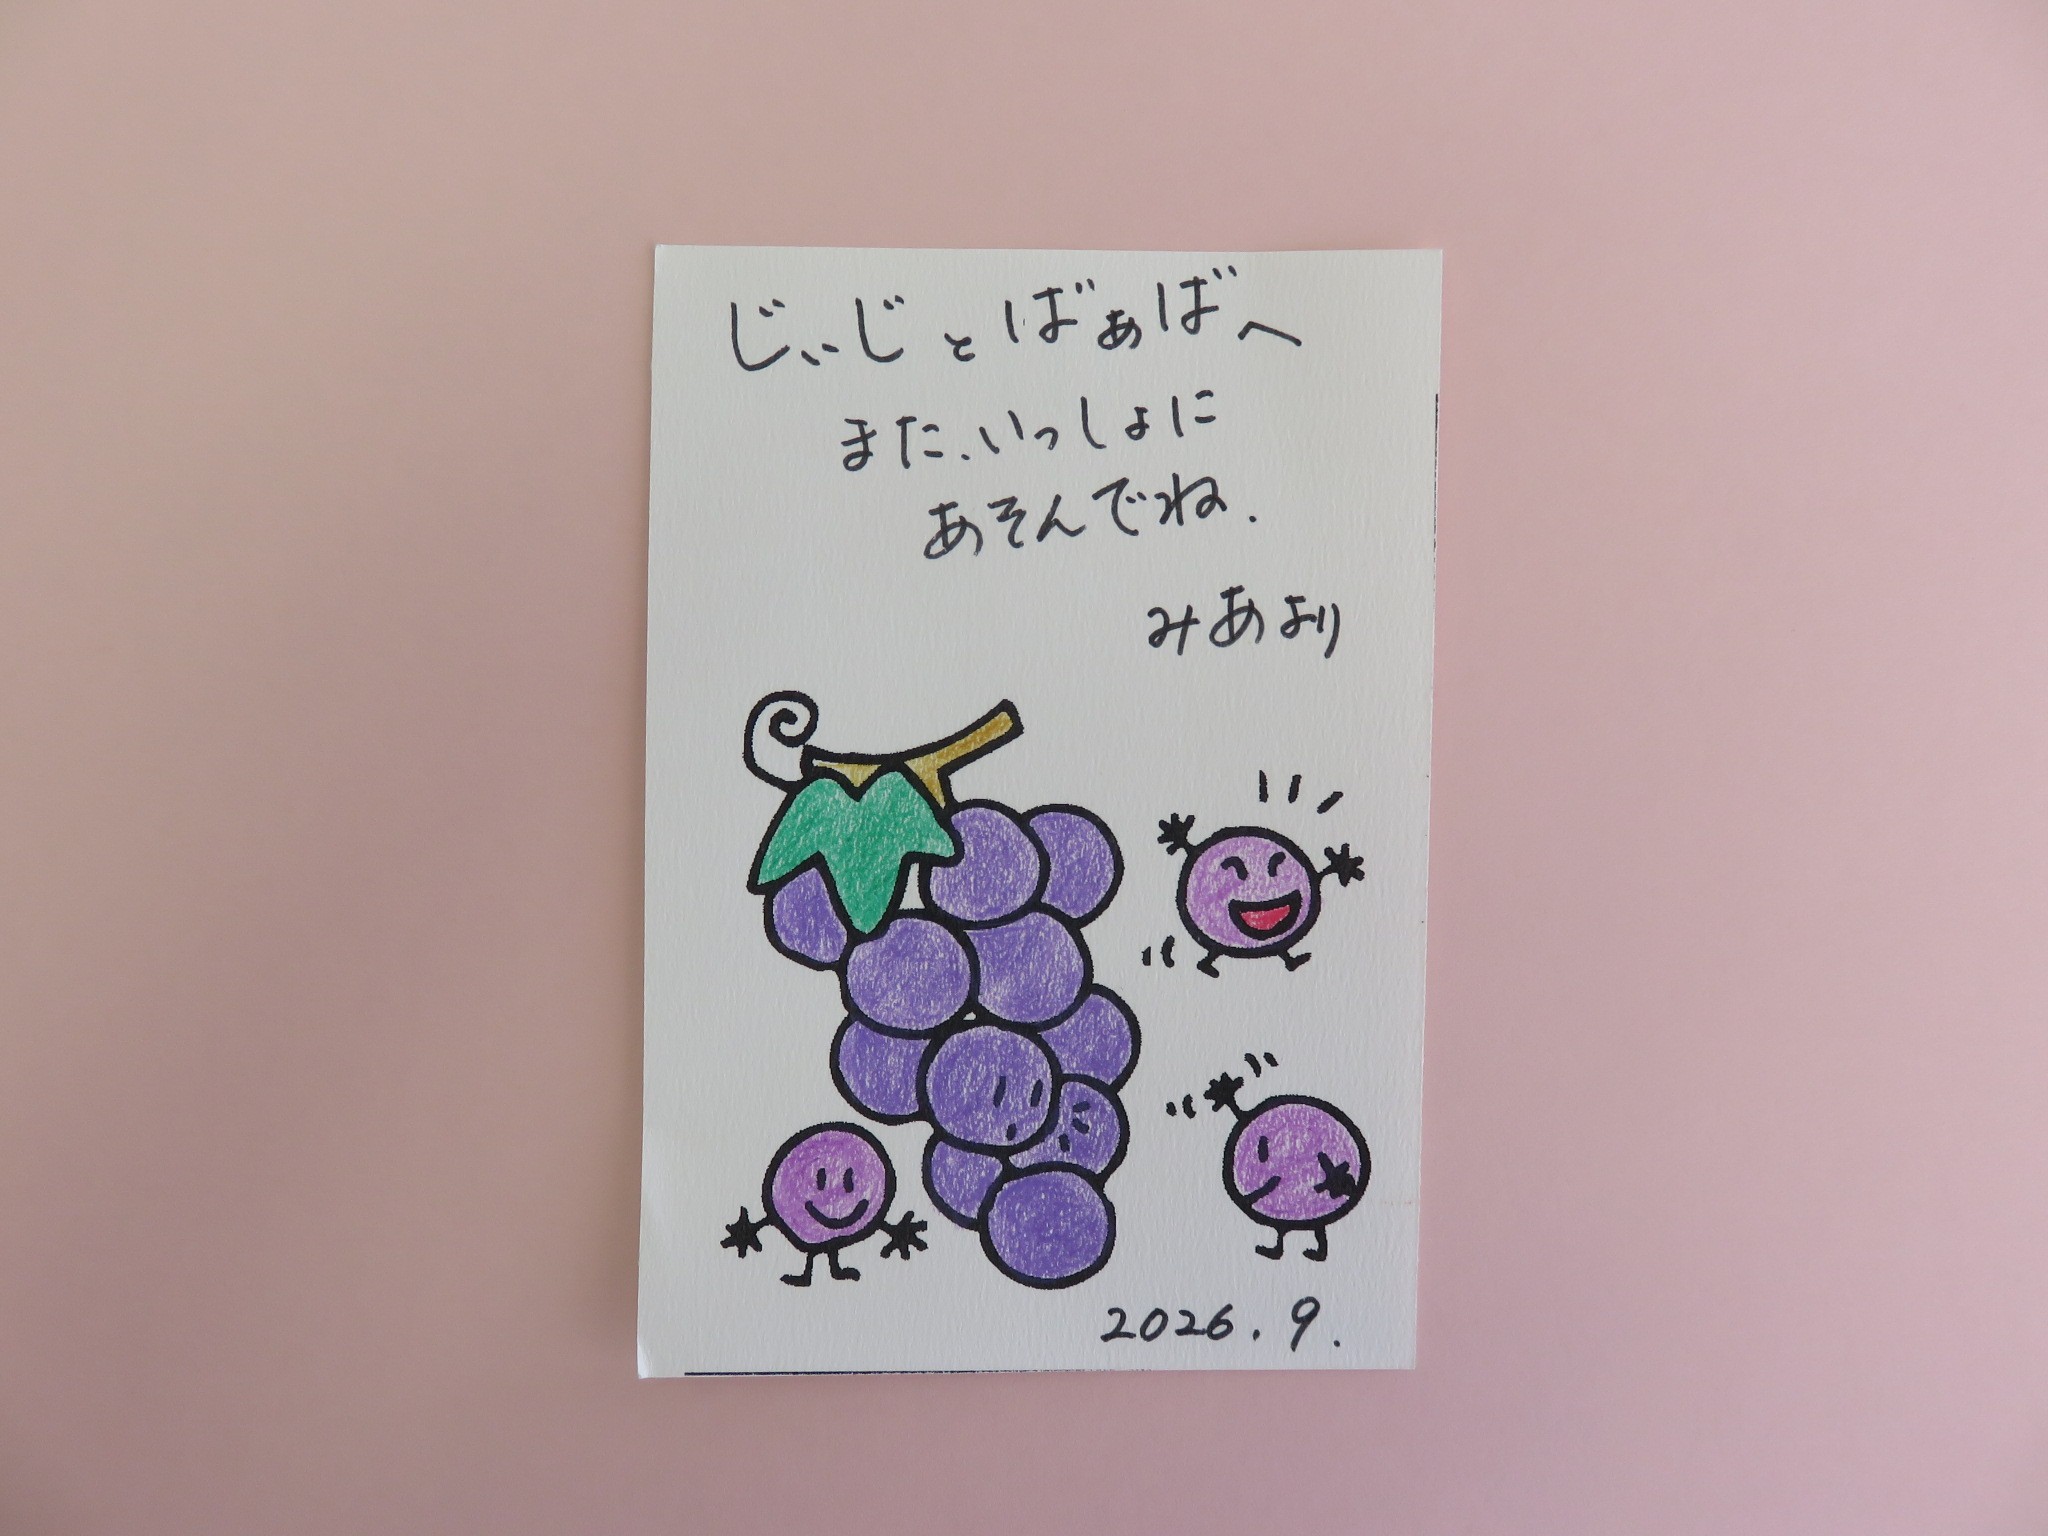 じぃじとばぁばへ
また、いっしょに
あそんでね.
みあより
2026.9.